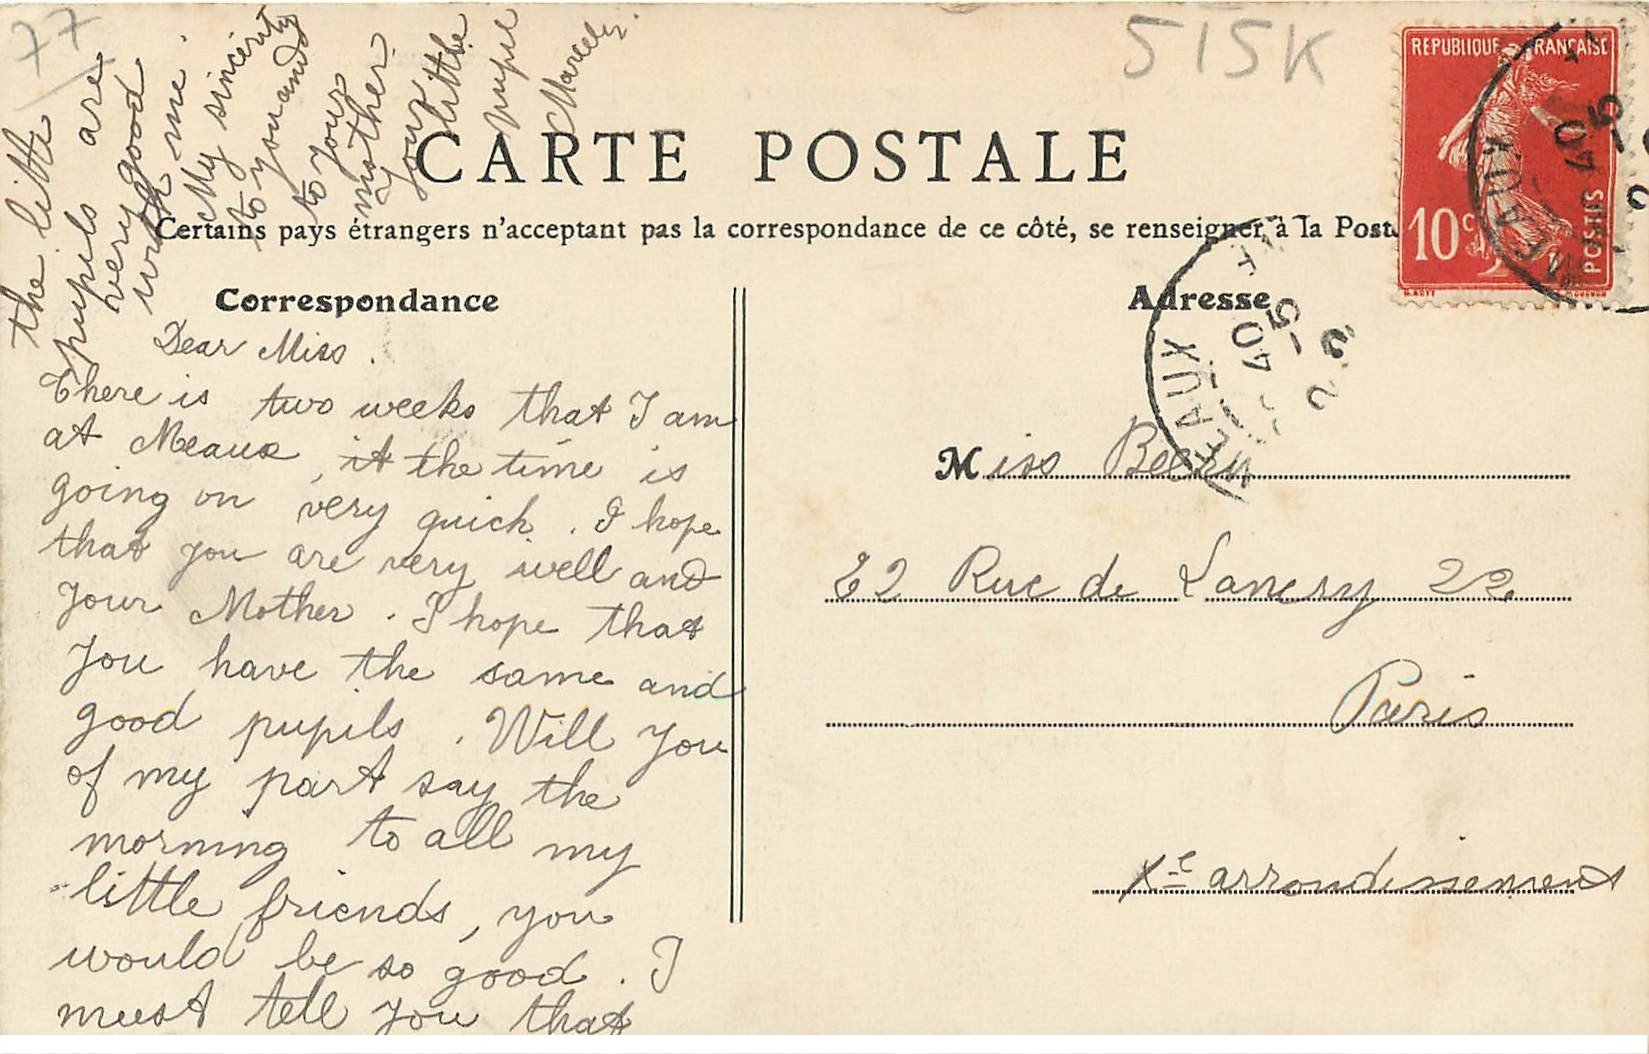 77
515K
REPUBLIQUE FRANÇAISE
10c
POSTES
MEAUX
CARTE POSTALE
Certains pays étrangers n'acceptant pas la correspondance de ce côté, se renseigner à la Poste
Correspondance
Dear Miss.
There is two weeks that I am
at Meaux, it the time is
going on very quick. I hope
that you are very well and
your Mother. I hope that
you have the same and
good pupils. Will you
of my part say the
morning to all my
little friends, you
would be so good. I
must tell you that
the little
pupils are
very good
with me.
My sincerity
to you and
to your
mother.
Your little
pupil
Marcelle
Adresse
MEAUX
Miss
22 Rue de Lancry 22
Paris
Xe arrondissement